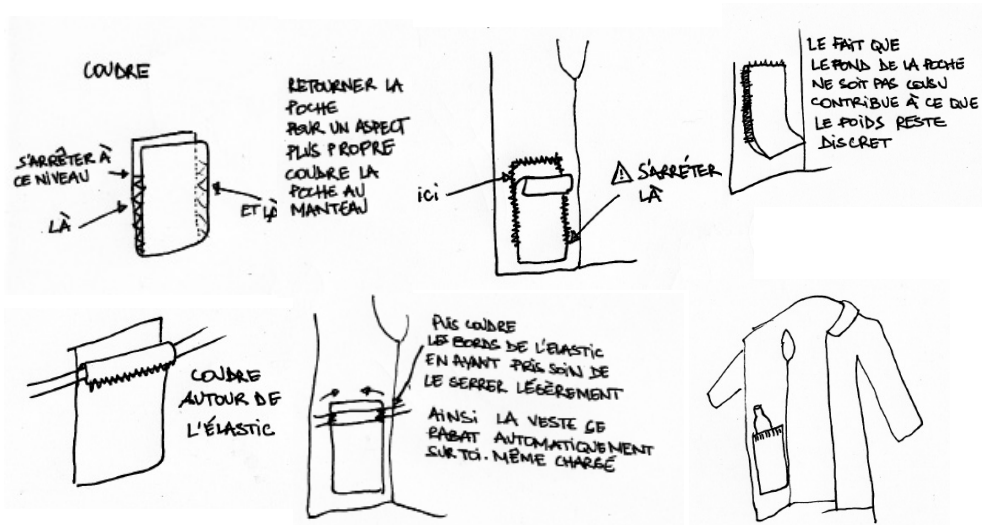 COUDRE
S'ARRÊTER À
CE NIVEAU
LÀ
ET LÀ
RETOURNER LA
POCHE
POUR UN ASPECT
PLUS PROPRE
COUDRE LA
POCHE AU
MANTEAU
ici
⚠ S'ARRÉTER
LÀ
LE FAIT QUE
LE FOND DE LA POCHE
NE SOIT PAS COUSU
CONTRIBUE À CE QUE
LE POIDS RESTE
DISCRET
COUDRE
AUTOUR DE
L'ÉLASTIC
PUIS COUDRE
LES BORDS DE L'ELASTIC
EN AYANT PRIS SOIN DE
LE SERRER LÉGÈREMENT
AINSI LA VESTE SE
RABAT AUTOMATIQUEMENT
SUR TOI. MÊME CHARGÉ